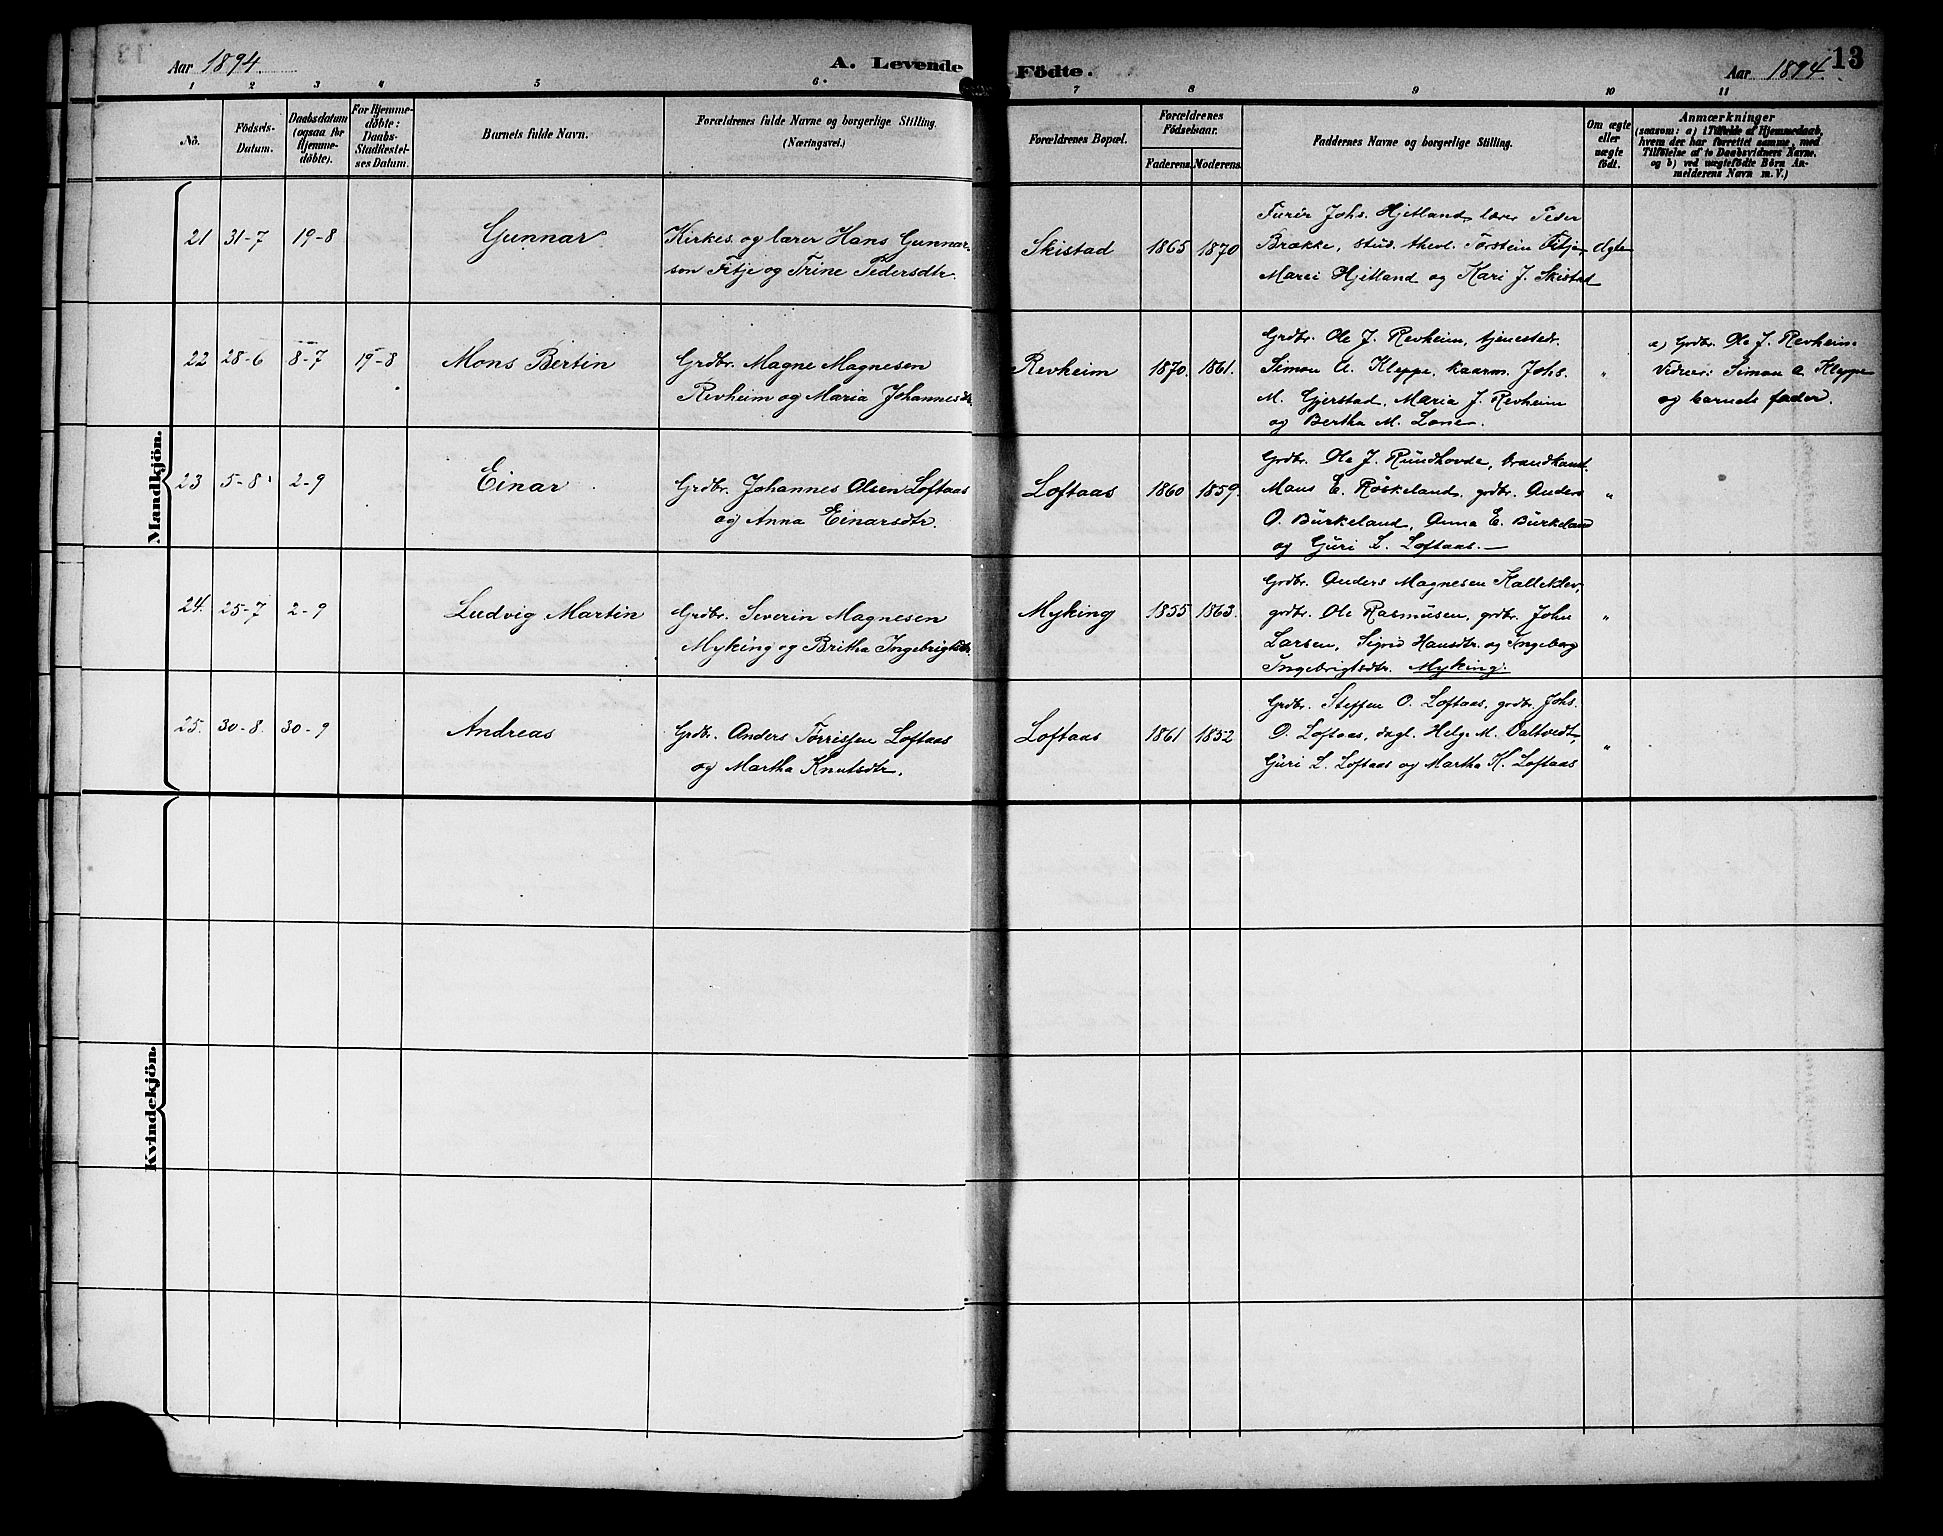 Aar 1894.
A. Levende
Födte.
Aar 1894.
13
1 2 3 4 5 6 7 8 9 10 11
No.
Födsels-
Datum.
Daabsdatum
(ogsaa for
Hjemme-
døbte).
For Hjemme-
døbte:
Daabs-
Stadfæstel-
ses Datum.
Barnets fulde Navn.
Forældrenes fulde Navne og borgerlige Stilling.
(Næringsvei.)
Forældrenes Bopæl.
Forældrenes
Födselsaar.
Faderens. Moderens.
Faddernes Navne og borgerlige Stilling.
Om ægte
eller
uægte
födt.
Anmærkninger
(saasom: a) i Tilfælde af Hjemmedaab,
hvem der har forrettet samme, med
Tilföielse af to Daabsvidners Navne,
og b) ved uægtefödte Börn An-
melderens Navn m. V.)
Mandkjön.
21 31-7 19-8
Gunnar
Kirkes. og lærer Hans Gunnar-
son Fitje og Trine Pedersdtr.
Skistad
1865 1870
Furér Johs. Hjetland, lærer Peder
Brække, stud. theol. Torstein Fitje,
Marei Hjetland og Kari J. Skistad
Ægte
22 28-6 8-7 19-8
Mons Bertin
Grdbr. Magne Magnesen
Revheim og Maria Johannesdtr.
Revheim
1870. 1861.
Grdbr. Ole J. Revheim, tjenestedr.
Simon A. Kleppe, kaarm. Johs.
M. Gjerstad, Maria J. Revheim
og Bertha M. Lone.
"
a) Grdbr. Ole J. Revheim.
Vidner: Simon A. Kleppe
og barnets fader.
23 5-8 2-9
Einar
Grdbr. Johannes Olsen Loftaas
og Anna Einarsdtr.
Loftaas
1860 1859.
Grdbr. Ole J. Rundhovde,
Mans E. Røskeland, grdbr. Anders
O. Burkeland, Anna E. Burkeland
og Guri L. Loftaas.
"
24. 25-7 2-9
Ludvig Martin
Grdbr. Severin Magnesen
Myking og Britha Ingebrigtsdtr.
Myking
1855 1863.
Grdbr. Anders Magnesen Kalleklev,
grdbr. Ole Rasmusen, grdbr. John
Larsen, Sigrid Hansdtr. og Ingeborg
Ingebrigtsdtr. Myking.
"
25. 30-8. 30-9
Andreas
Grdbr. Anders Tørrissen Loftaas
og Martha Knutsdtr.
Loftaas
1861 1852
Grdbr. Steffen O. Loftaas, grdbr. Johs.
O. Loftaas, dagl. Helge M. Daltvedt,
Guri L. Loftaas og Martha K. Loftaas
"
Kvindekjön.